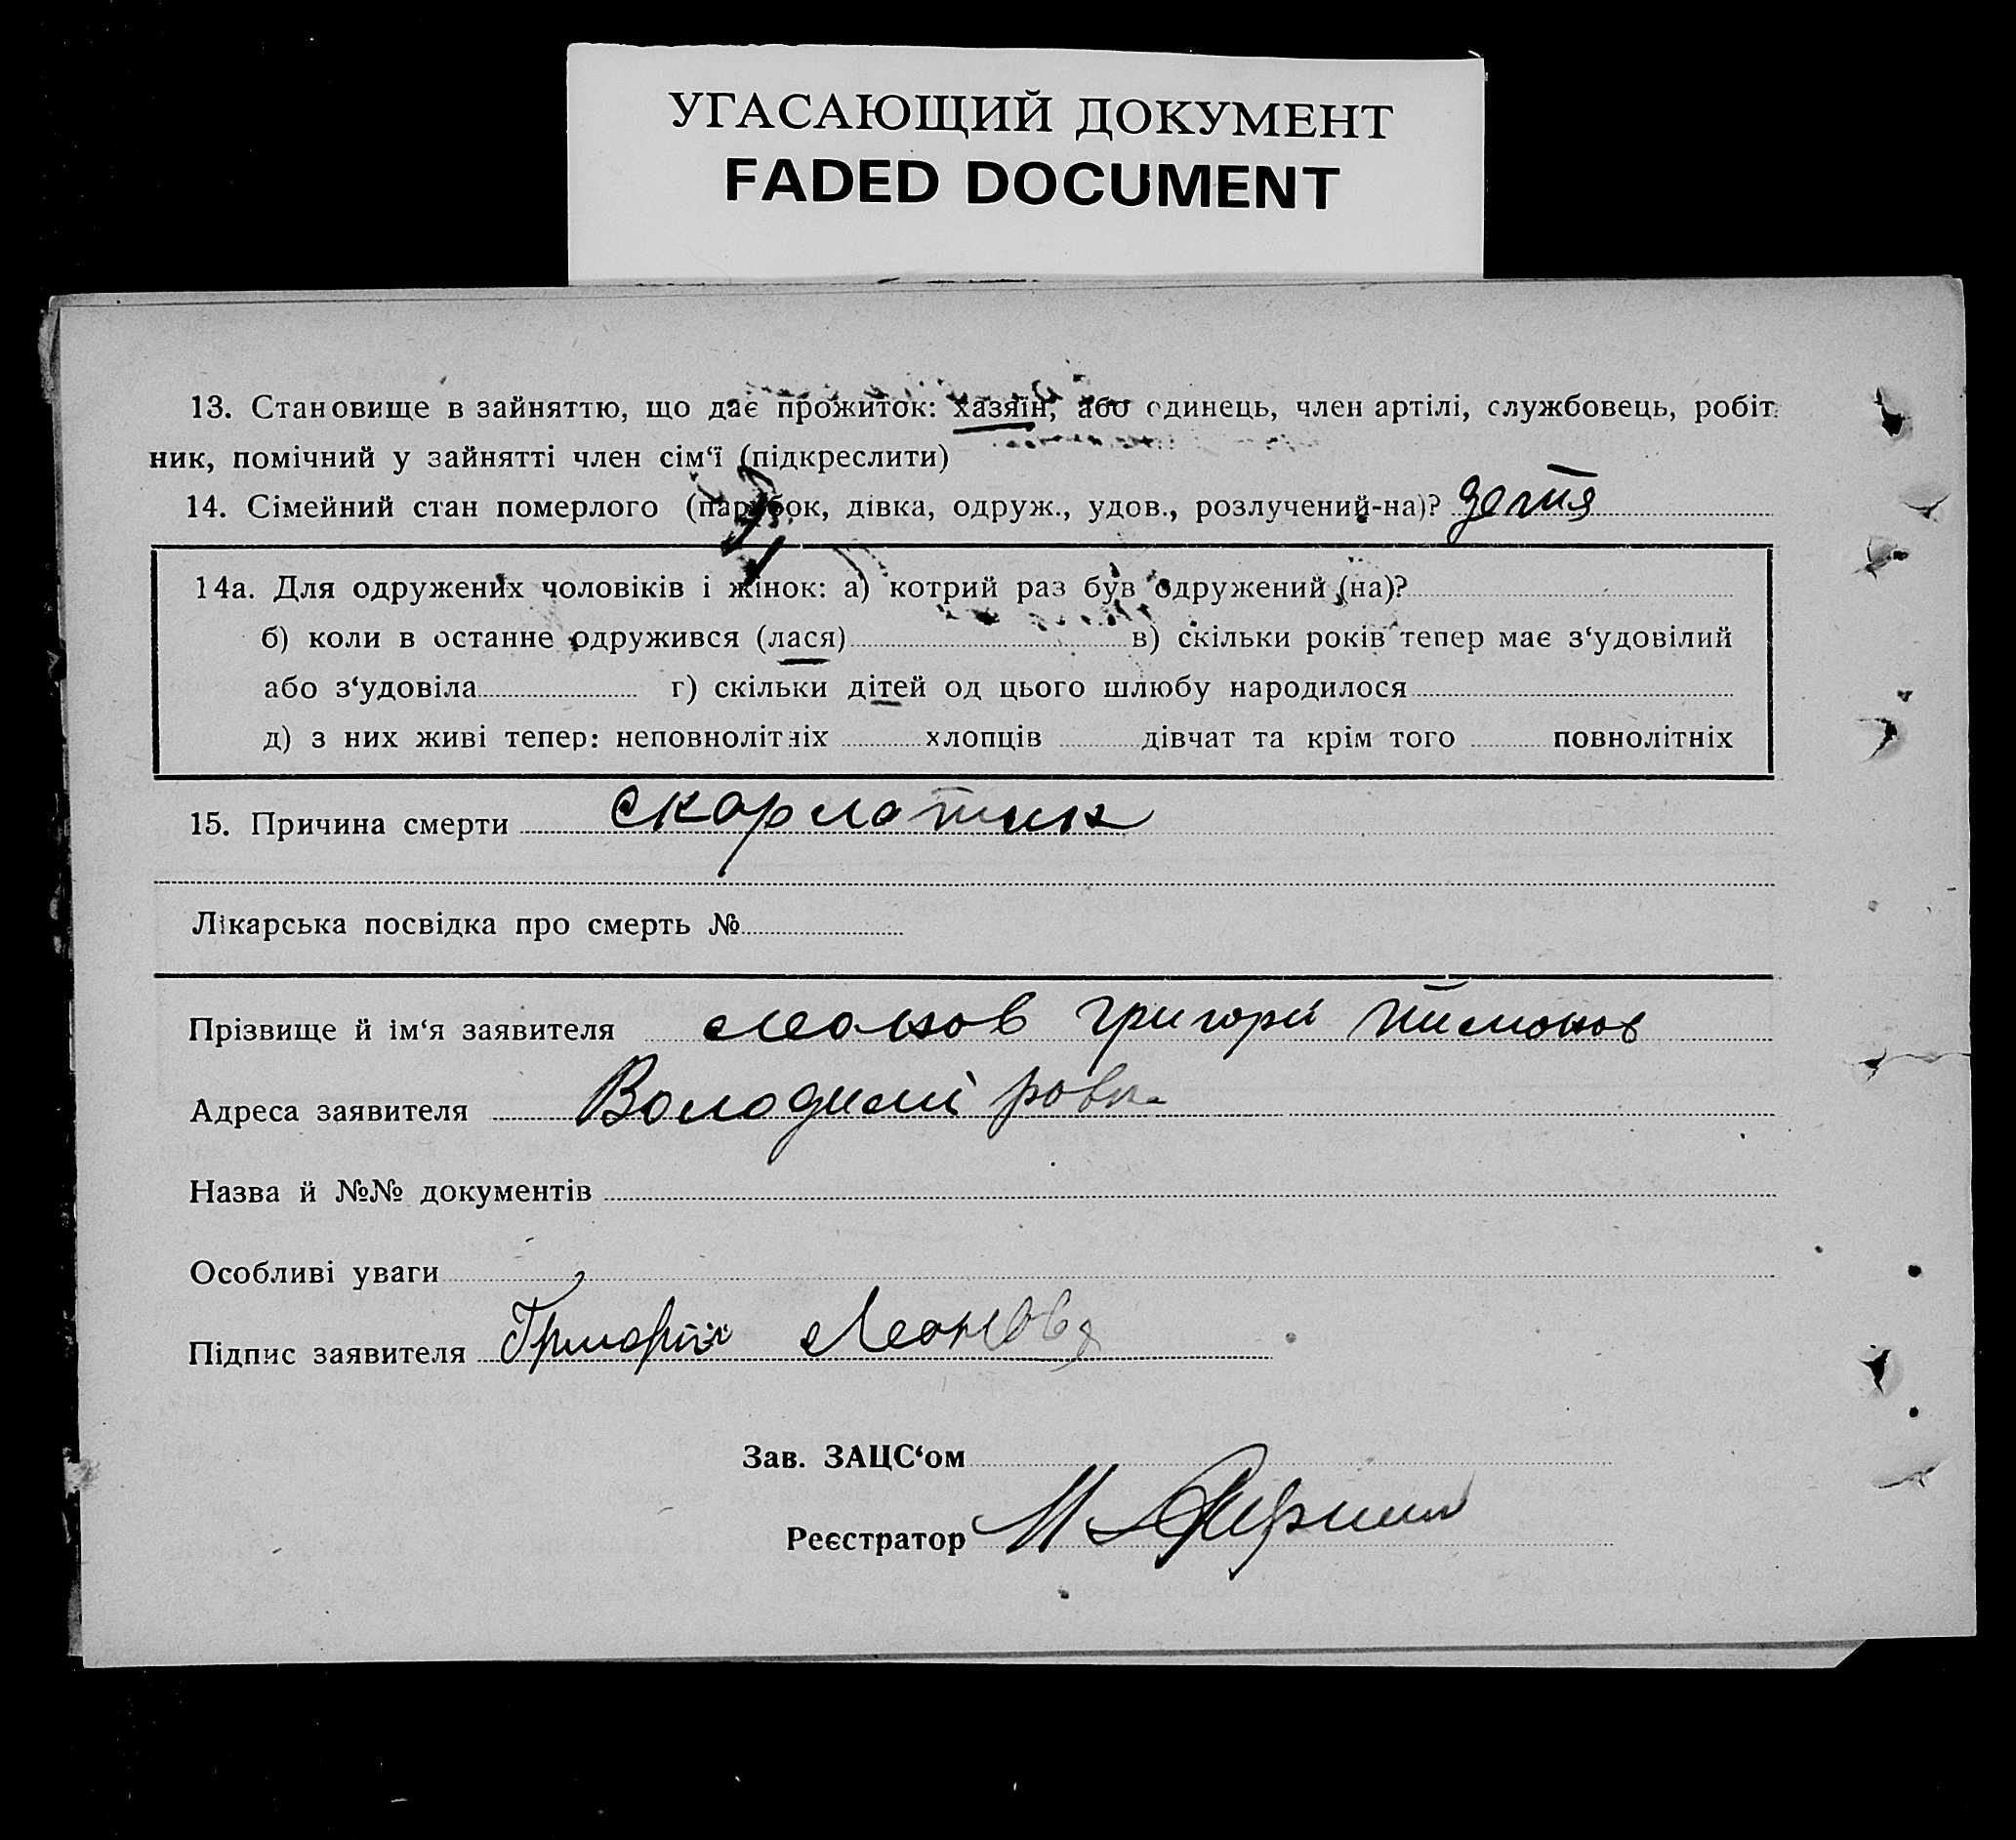 УГАСАЮЩИЙ ДОКУМЕНТ
FADED DOCUMENT
13. Становище в зайняттю, що дає прожиток: хазяїн, або одинець, член артілі, службовець, робіт-
ник, помічний у зайнятті член сім‘ї (підкреслити)
14. Сімейний стан померлого (парубок, дівка, одруж., удов., розлучений-на)? детя
14а. Для одружених чоловіків і жінок: а) котрий раз був одружений (на)?
б) коли в останне одружився (лася) в) скільки років тепер має з‘удовілий
або з‘удовіла г) скільки дітей од цього шлюбу народилося
д) з них живі тепер: неповнолітніх хлопців дівчат та крім того повнолітніх
15. Причина смерти скарлатина
Лікарська посвідка про смерть №
Прізвище й ім‘я заявителя Леонов Григорій Тимонов
Адреса заявителя Володимировка
Назва й №№ документів
Особливі уваги
Підпис заявителя Григорій Леонов
Зав. ЗАЦС‘ом
Реєстратор